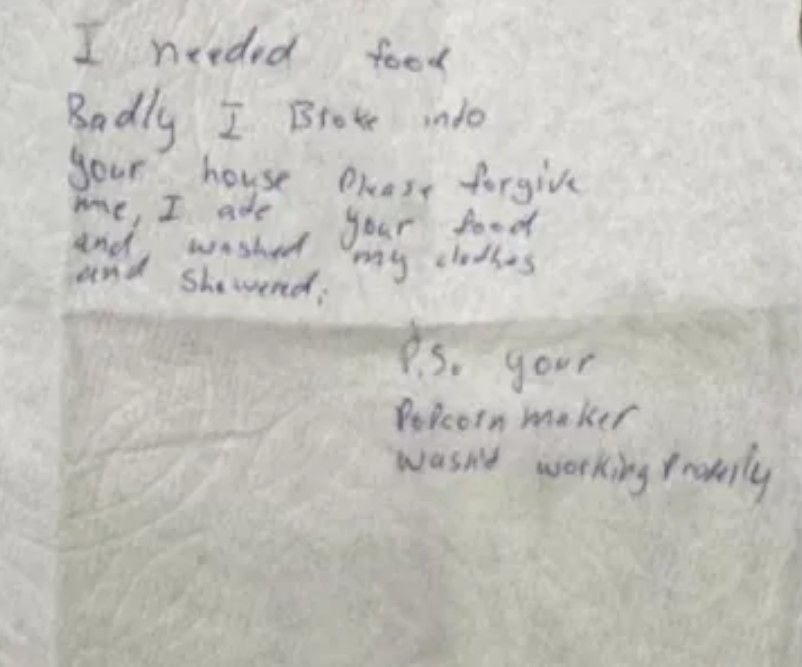 I needed food
Badly I Broke into
your house Please forgive
me, I ate your food
and washed my clothes
and Showered.
P.S. your
Popcorn maker
wasn't working Properly